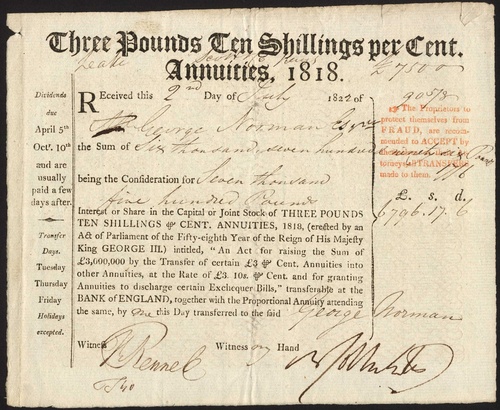 Three Pounds Ten Shillings per Cent.
Annuities, 1818.
£7500
Dividends
due
April 5th
Oct. 10th
and are
usually
paid a few
days after.
Transfer
Days.
Tuesday
Thursday
Friday
Holidays
excepted.
Received this 2nd Day of July 1822 of
George Norman Esqre
the Sum of Six thousand, seven hundred & ninety six Pounds
being the Consideration for Seven thousand
five hundred Pounds
Interest or Share in the Capital or Joint Stock of THREE POUNDS
TEN SHILLINGS ⅌ CENT. ANNUITIES, 1818, (erected by an
Act of Parliament of the Fifty-eighth Year of the Reign of His Majesty
King GEORGE III.) intitled, "An Act for raising the Sum of
£3,000,000 by the Transfer of certain £3 ⅌ Cent. Annuities into
other Annuities, at the Rate of £3. 10s. ⅌ Cent. and for granting
Annuities to discharge certain Exchequer Bills," transferable at the
BANK of ENGLAND, together with the Proportional Annuity attending
the same, by me this Day transferred to the said George Norman
Witness my Hand
Witness
R Rennel
90 5/8
The Proprietors to
protect themselves from
FRAUD, are recom-
mended to ACCEPT by
made to them.
£. s. d.
6796.17.6